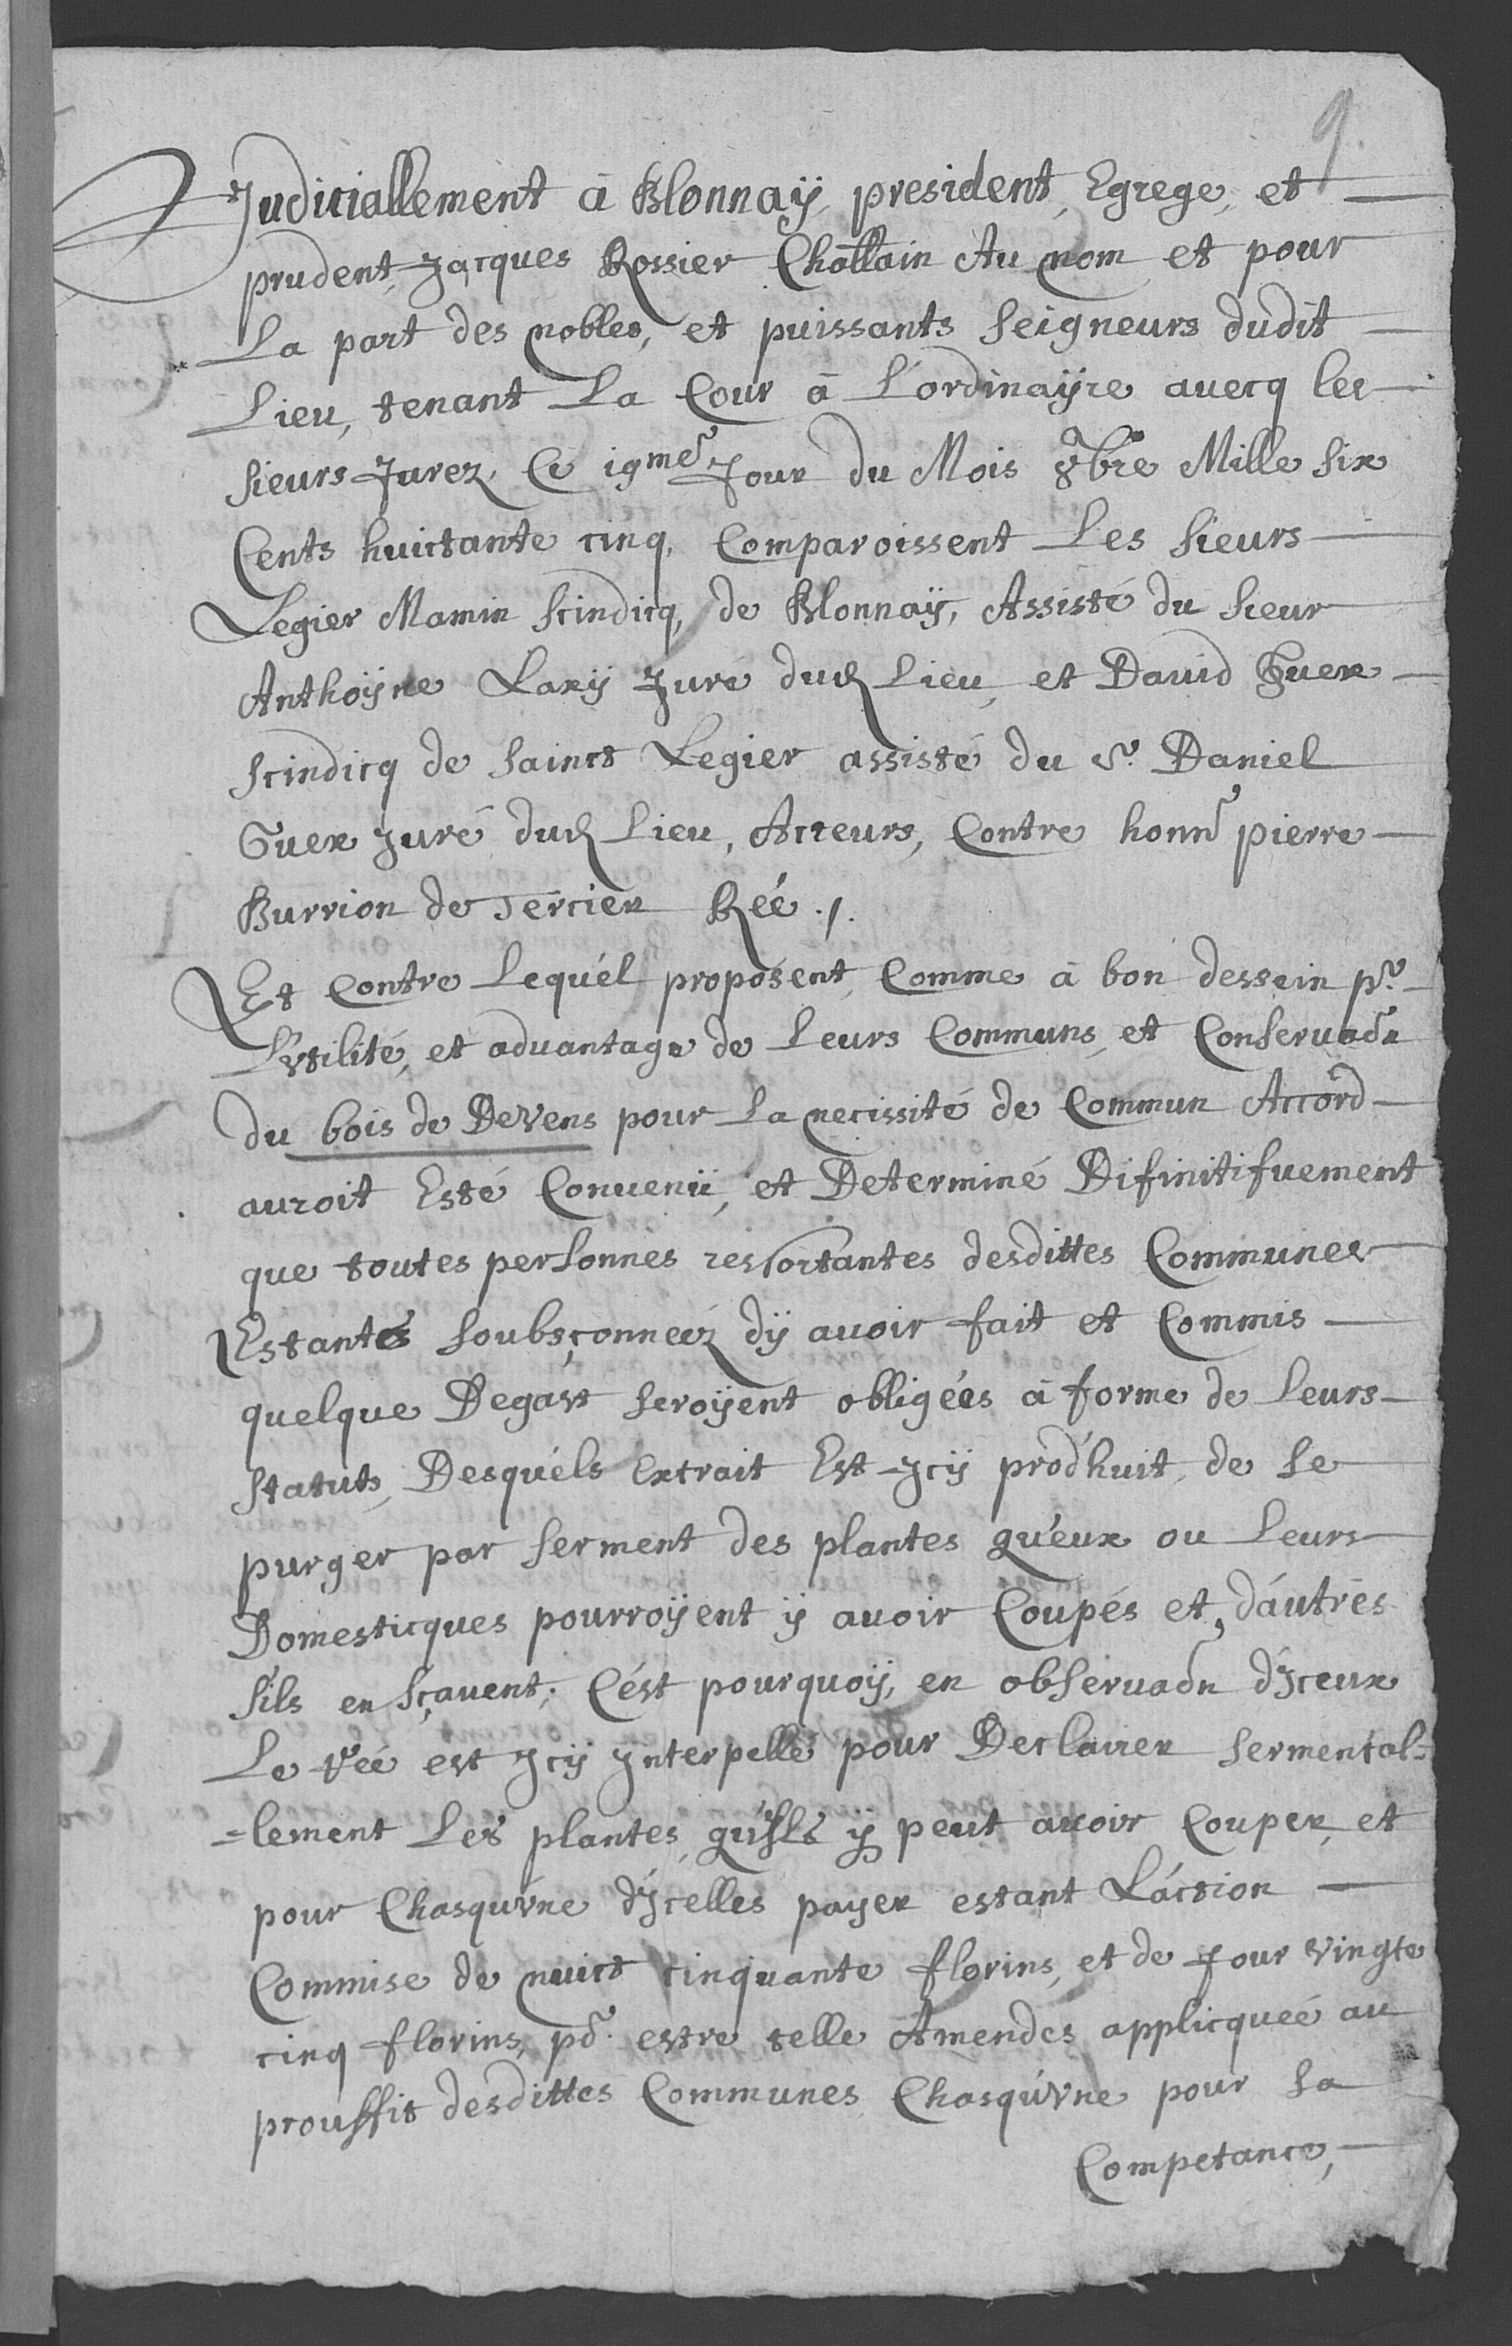 9.
Judiciallement à Blonnaÿ, president, Egrege, et
prudent, Jacques Rossier Chãllain Au nom et pour
La part des nobles, et puissants Seigneurs dudit
Lieu, tenant La Cour à L'ordinaÿre avecq les
Sieurs Jurez, Ce 19me Jour du Mois 8bre Mille Six
Cents huictante cinq, Comparoissent Les Sieurs
Legier Mamin Scindicq, de Blonnaÿ, Assisté du Sieur
Anthoÿne Laxÿ Juré dud Lieu, et David Guex
Scindicq de Sainct Legier assisté du Sr. Daniel
Guex Juré dud Lieu, Acteurs, Contre honn pierre
Burrion de Tercier Reé ./.
Et Contre Lequél proposent, Comme à bon dessein pr.
L'vtilité, et advantage de Leurs Communs, et Conservaõn
du bois de Devens pour La necissité de Commun Accord
auroit Esté Convenü, et Determiné Difinitifuement
que toutes personnes ressortantes desdittes Communes
Estantes Soubsçonneéz dÿ avoir fait et Commis
quelque Degast Seroÿent obligées à forme de Leurs
Statuts, Desquéls Extrait Est Jcÿ prodhuit, de Se
purger par Serment des plantes qu'eux ou Leurs
Domesticques pourroÿent ÿ avoir Coupés et, d'autres
S'ils en Sçavent; C'ést pourquoÿ, en observaõn d'Jceux
Le reé est Jcÿ Jnterpellé pour Declairer Sermental=
=lement Les plantes, qu'Jls ÿ peut avoir Couper, et
pour Chasquvne d'Jcelles payer estant L'áction
Commise de nuict cinquante florins, et de Jour vingte
cinq florins, pr. estre telle Amendes applicqueé au
prouffit desdittes Communes, Chasquvne pour Sa
Competance,